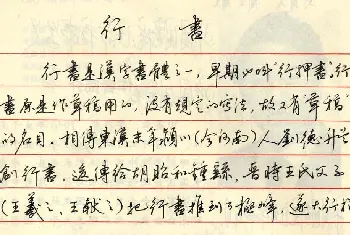 行書
行書是漢字書體之一，早期也叫“行押書”。行
書原是作草稿用的，没有規定的寫法，故又有“草稿”
的名目。相傳東漢末年潁川（今河南）人劉德升首
創行書，遂傳給胡昭和鍾繇，晋時王氏父子
（王羲之、王献之）把行書推到了極峰，遂大行於